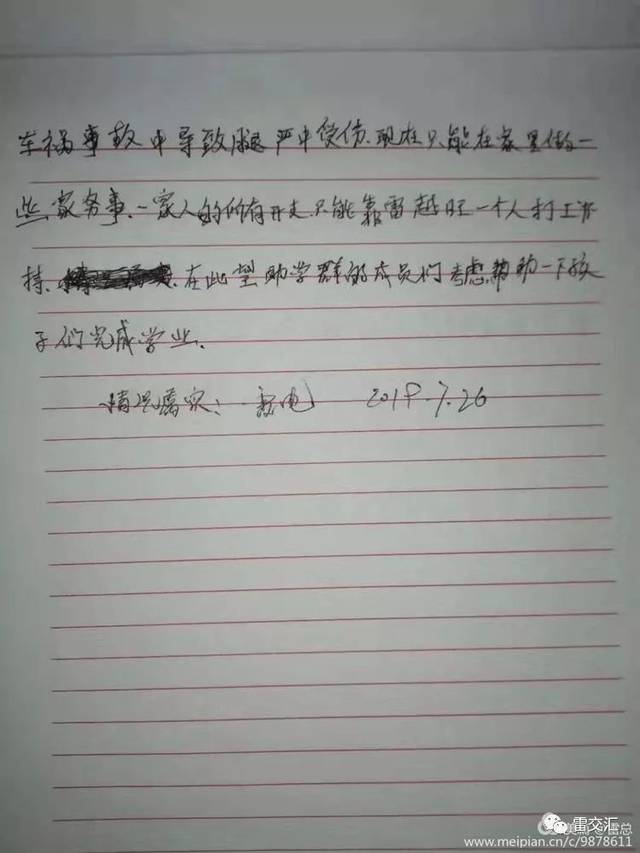 车祸事故中导致腿严中受伤、现在只能在家里做一
些家务事、一家人的所有开支只能靠雷越旺一个人打工资
持、在此望助学群的成员们考虑帮助一下孩
子们完成学业、
情况属实: 2019.7.26
雷交汇
www.meipian.cn/c/9878611